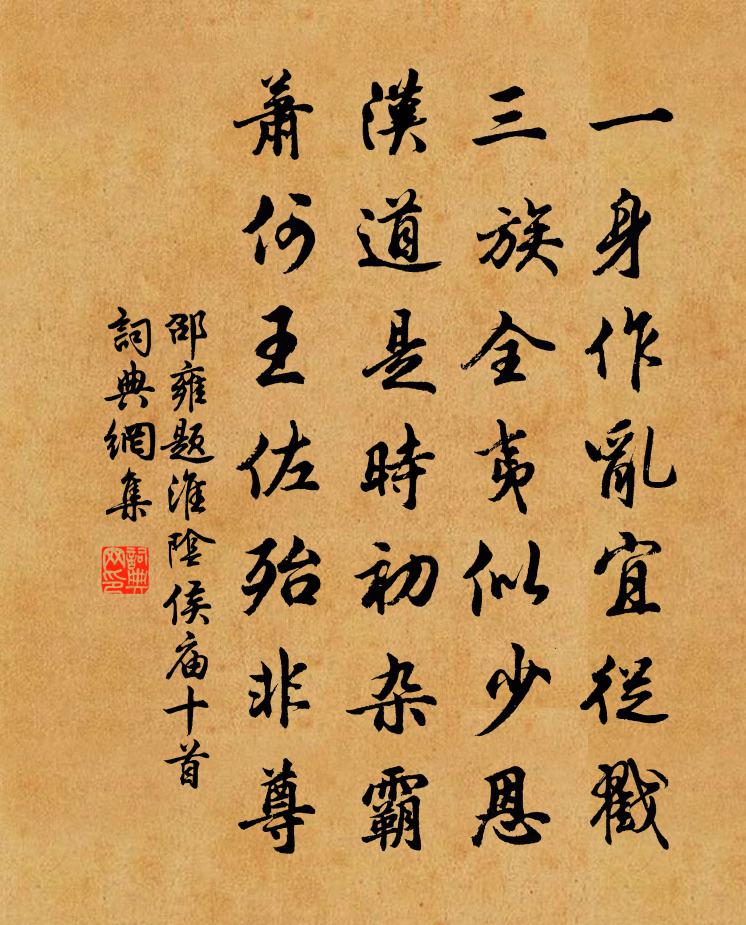 一身作亂宜從戮
三族全夷似少恩
漢道是時初杂霸
蕭何王佐殆非尊
邵雍題淮陰侯庙十首
詞典網集
詞典网印